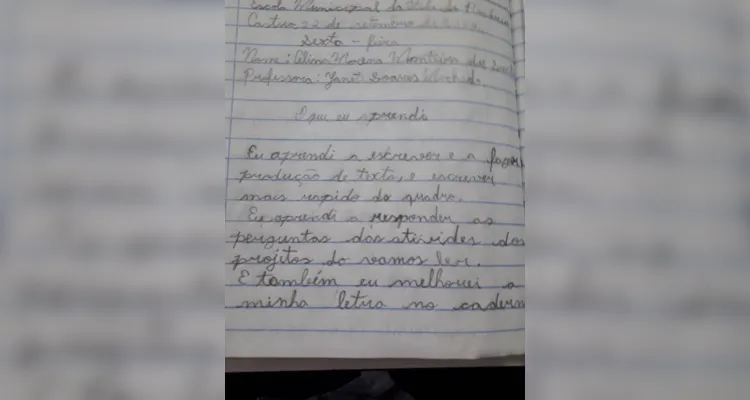 Escola Municipal
Castro, 22 de setembro de
Sexta - feira
Nome: Monteiro dos
Professora: Janet Soares Machado.
O que eu aprendi
Eu aprendi a escrever e a fazer
produção de texto, e escrever
mais respido do quadro.
Eu aprendi a responder as
perguntas das atividades dos
projitos do vamos ler.
E também eu melhorei a
minha letra no cadern